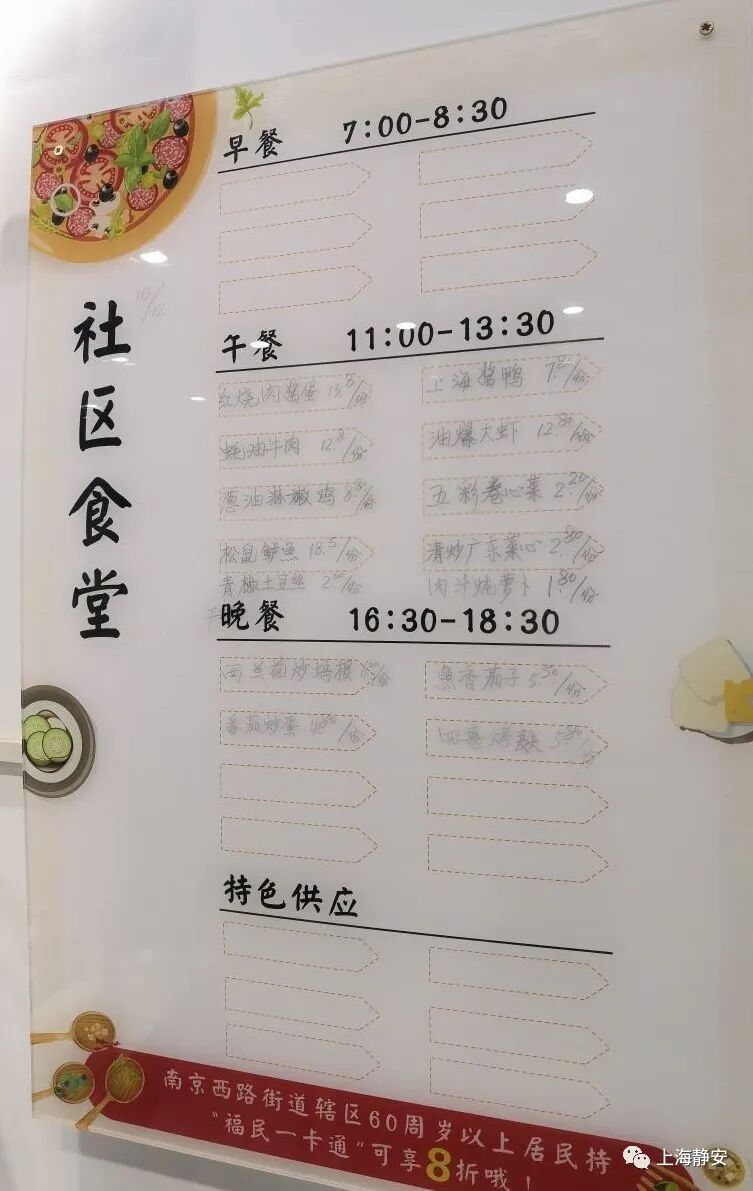 社区食堂
10/12
早餐 7:00-8:30
午餐 11:00-13:30
红烧肉酱蛋 13.8/份
上海酱鸭 7.80/份
蚝油牛肉 12.8/份
油爆大虾 12.80/份
葱油淋嫩鸡 8.8/份
五彩卷心菜 2.20/份
松鼠鲈鱼 18.5/份
清炒广东菜心 2.80/份
青椒土豆丝 2.00/份
肉汁炖萝卜 1.80/份
晚餐 16:30-18:30
西兰花炒 /份
魚香茄子 5.50/份
番茄炒蛋 4.80/份
四喜烤麸 5.80/份
特色供应
南京西路街道辖区60周岁以上居民持
"福民一卡通"可享8折哦！
上海静安